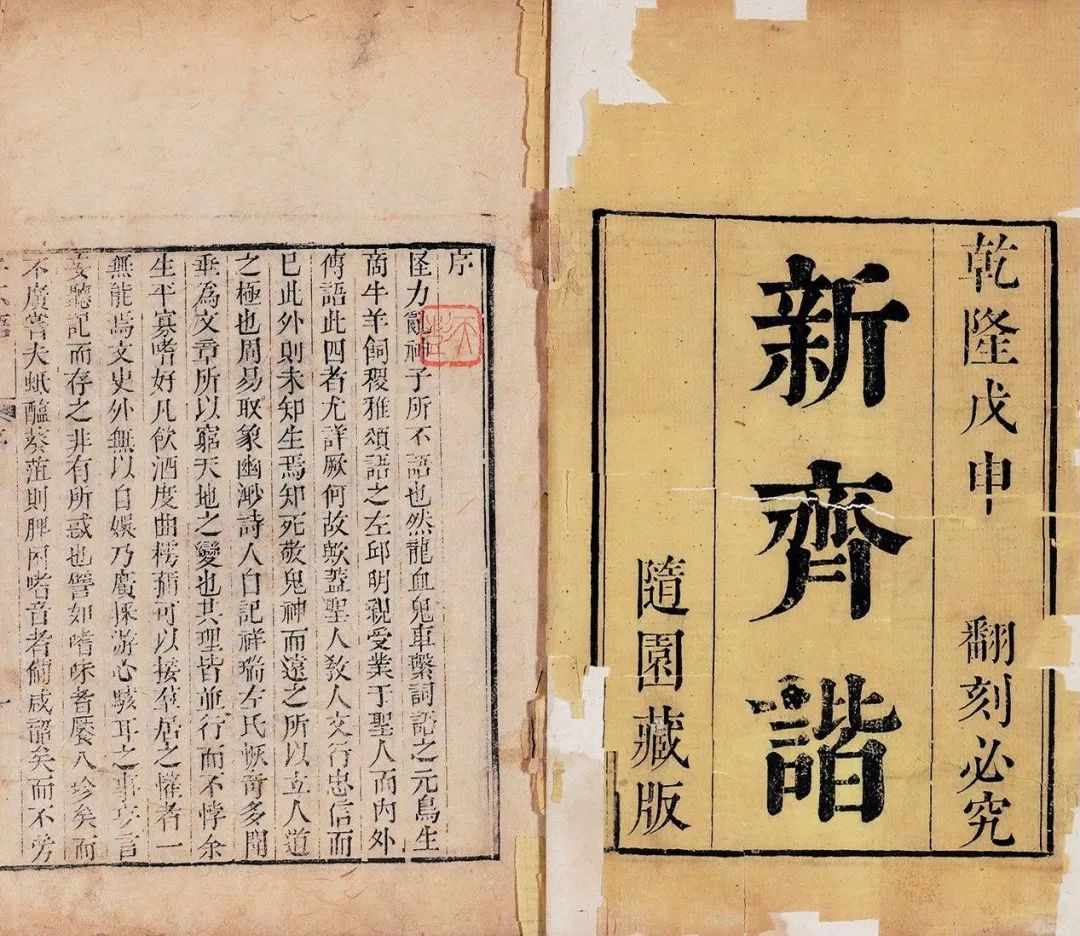 乾隆戊申 翻刻必究
新齊諧
隨園藏版
序
怪力亂神子所不語也然龍血鬼車繫詞語之元鳥生
商牛羊飼稷雅頌語之左邱明親受業于聖人而內外
傳語此四者尤詳厥何故歟蓋聖人教人文行忠信而
已此外則未知生焉知死敬鬼神而遠之所以立人道
之極也周易取象幽渺詩人自記祥瑞左氏恢奇多聞
垂為文章所以窮天地之變也其理皆並行而不悖余
生平寡嗜好凡飲酒度曲樗蒱可以接羣居之懽者一
無能焉文史外無以自娛乃廣採游心駭耳之事妄言
妄聽記而存之非有所惑也譬如嗜味者饜八珍矣而
不廣嘗夫蚳醢葵菹則脾困嗜音者備咸韶矣而不旁